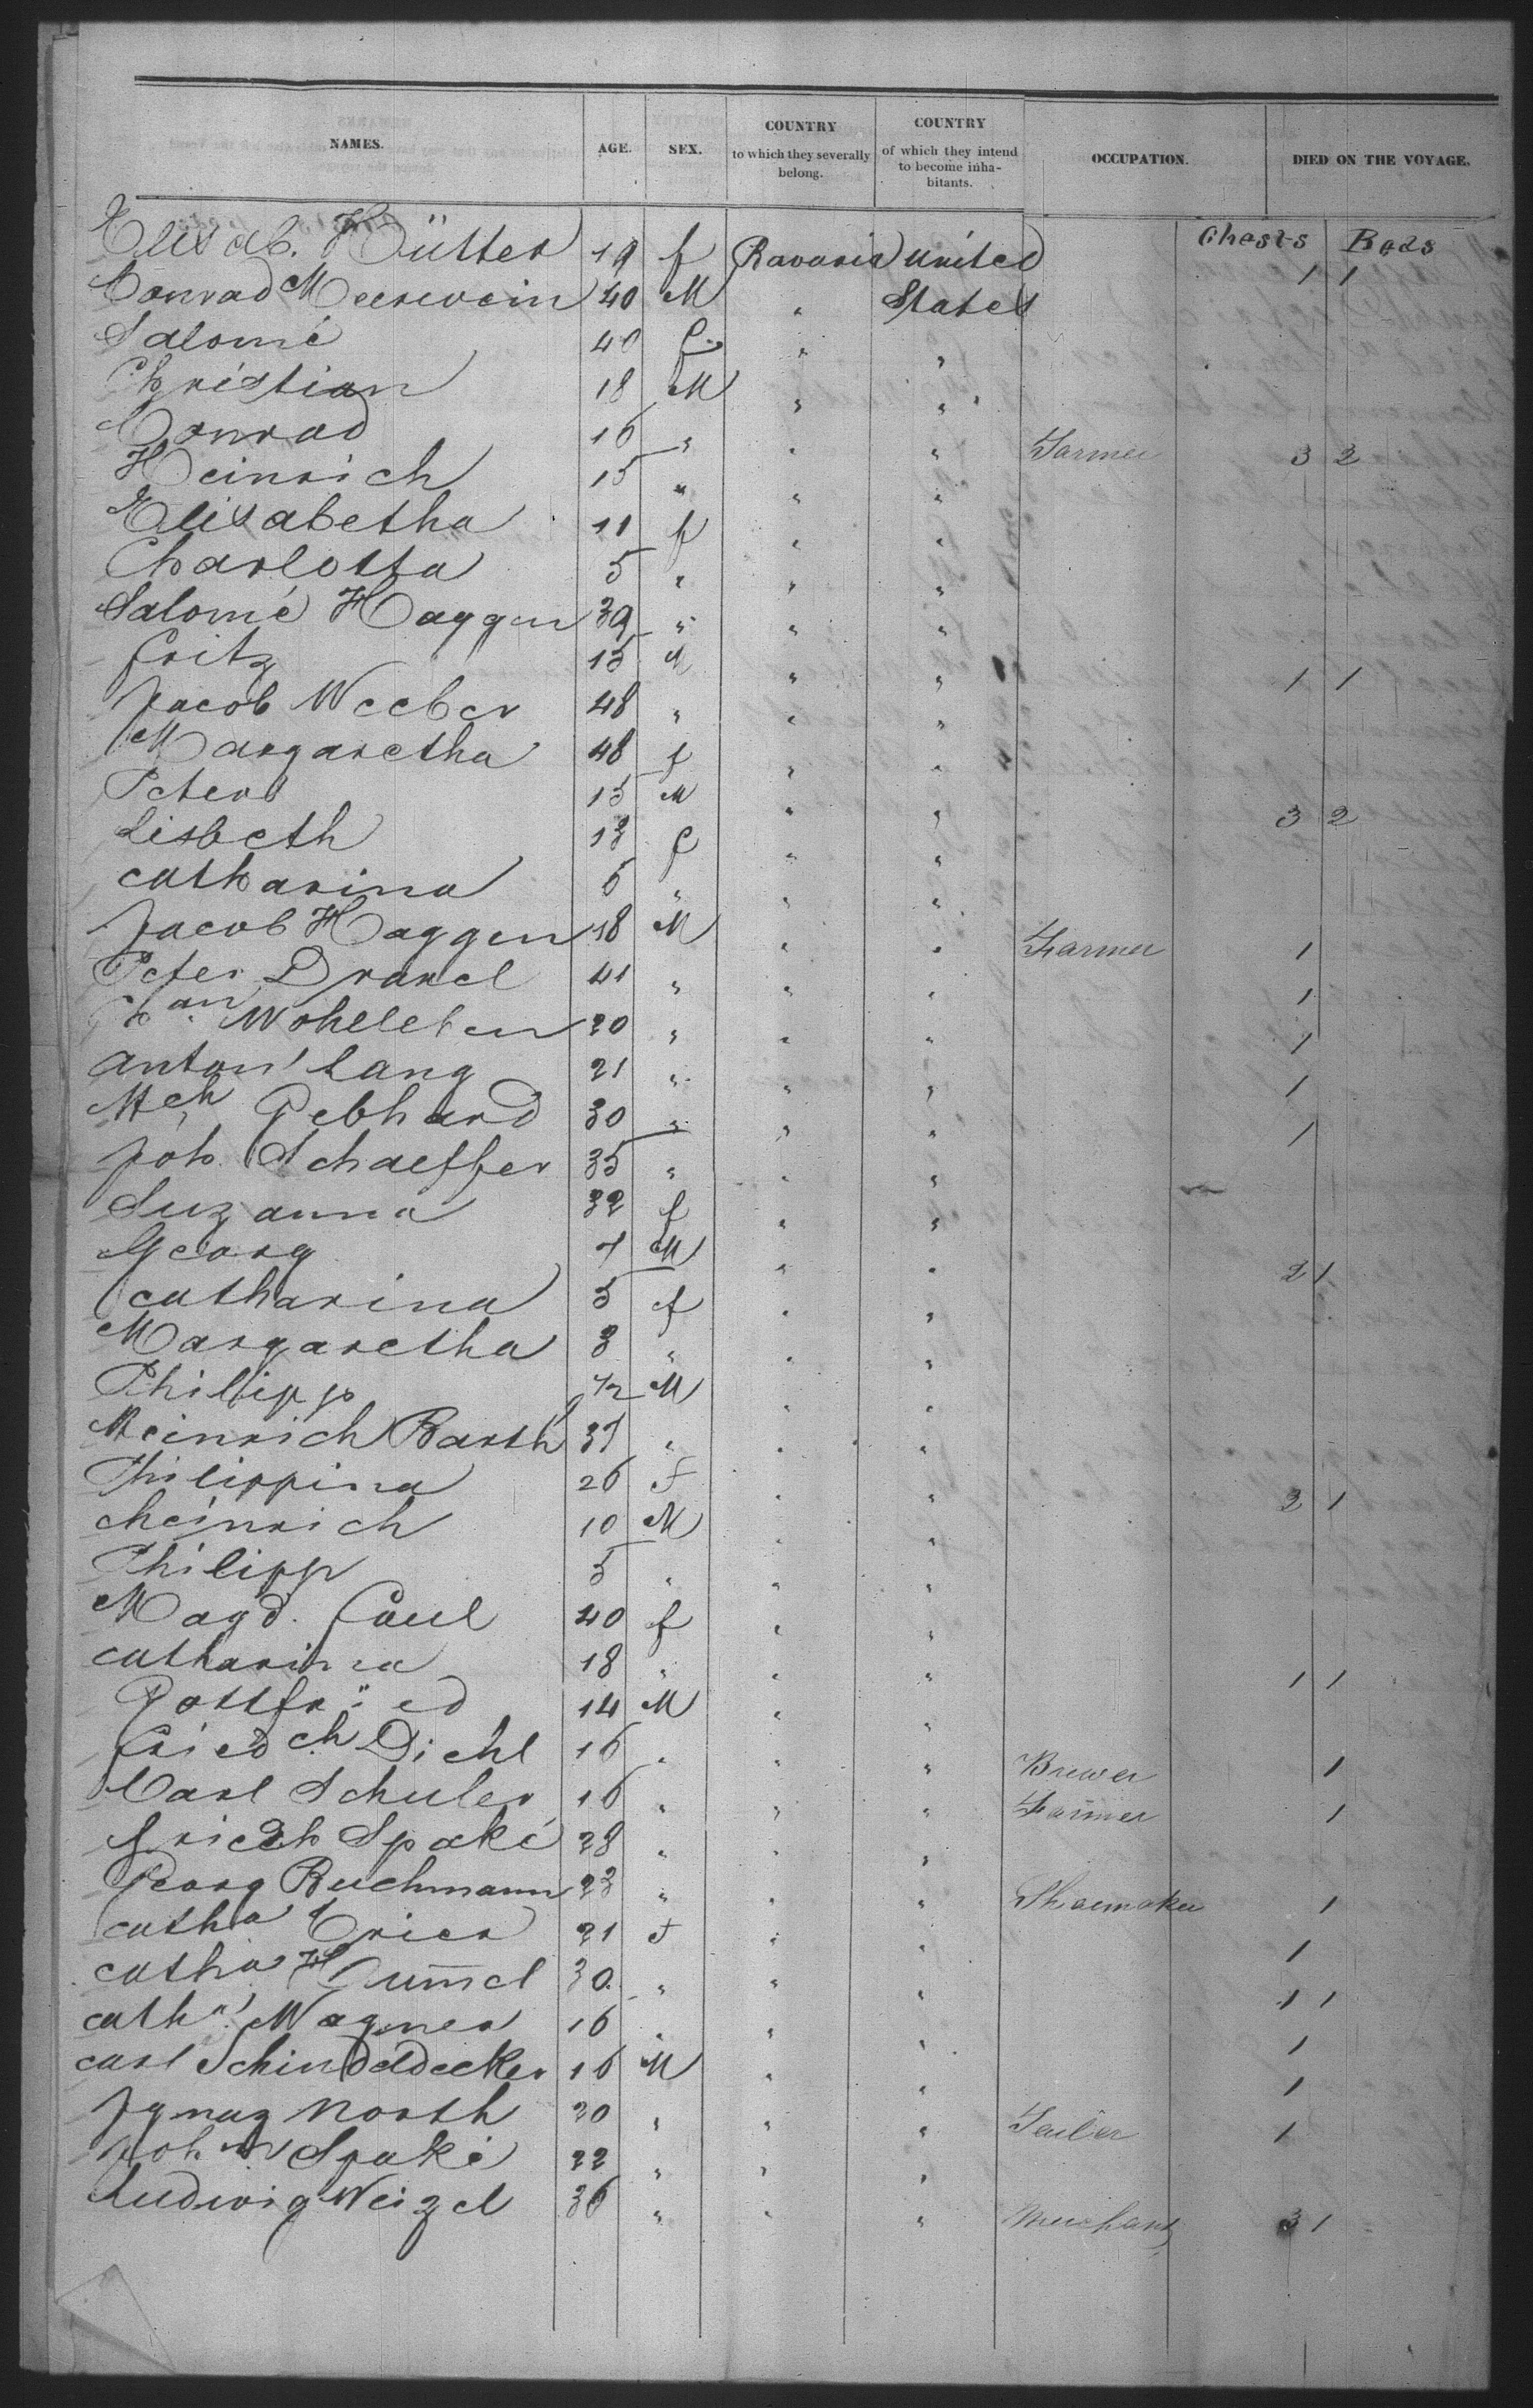 NAMES. AGE. SEX. COUNTRY to which they severally belong. COUNTRY of which they intend to become inhabitants. OCCUPATION. DIED ON THE VOYAGE.
Chests Beds
Elisab. Hütter 19 f Bavaria United 1 1
Conrad Meerwein 40 M " States
Salomé 40 f " "
Christian 18 M " "
Conrad 16 " " " Farmer 3 2
Heinrich 15 " " "
Elisabetha 11 f " "
Charlotta 5 " " "
Salomé Haggen 39 " " "
Fritz 15 M " " 1 1
Jacob Weeber 48 " " "
Margaretha 48 f " "
Peter 15 M " " 3 2
Lisbeth 13 f " "
Catharina 6 " " "
Jacob Haggen 18 M " " Farmer 1
Peter 41 " " " 1
Wohlleben 20 " " " 1
Anton Lang 21 " " " 1
Mch Gebhard 30 " " " 1
Joh. Schaeffer 35 " " "
Suzanna 32 f " "
Georg 7 M " " 2 1
Catharina 5 f " "
Margaretha 3 " " "
Philipp M " "
Heinrich Barth 37 " " "
Philippina 26 F " " 3 1
Heinrich 10 M " "
Philipp 5 " " "
Magd. Faul 40 f " "
Catharina 18 " " " 1 1
Gottfried 14 M " "
Friedch Diehl 16 " " " Brewer 1
Carl Schuler 16 " " " Farmer 1
Spaké 28 " " "
Georg Buchmann 23 " " " Shoemaker 1
Catha 21 F " " 1
Catha Hum̄el 30 " " " 1 1
Catha Wagner 16 " " " 1
Carl Schindeldecker 16 M " " 1
Ignaz North 20 " " " 1
Spaké 22 " " "
Ludwig Weizel 36 " " " Merchant 3 1